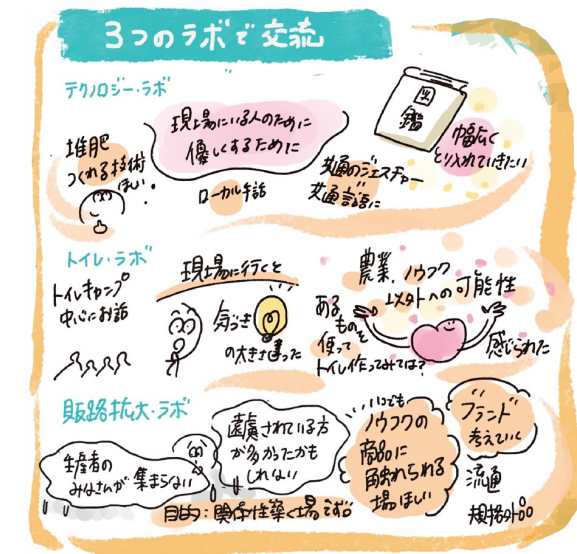 3つのラボで交流
テクノロジー・ラボ
堆肥
つくれる技術
ほしい!
現場にいる人のために
優しくするために
ローカル手話
図
鑑
共通のジェスチャー
共通言語に
幅広く
とり入れていきたい
トイレ・ラボ
トイレキャンプ
中心にお話
現場に行くと
気づき
の大きさ違った
農業、ノウフク
以外への可能性
感じられた
ある
ものを
使って
トイレ作ってみては?
販路拡大・ラボ
生産者の
みなさんが集まらない
遠慮されている方
が多かったかも
しれない
目的:関係性築く場です。
いつでも
ノウフクの
商品に
触れられる
場ほしい
ブランド
考えていく
流通
規格外品